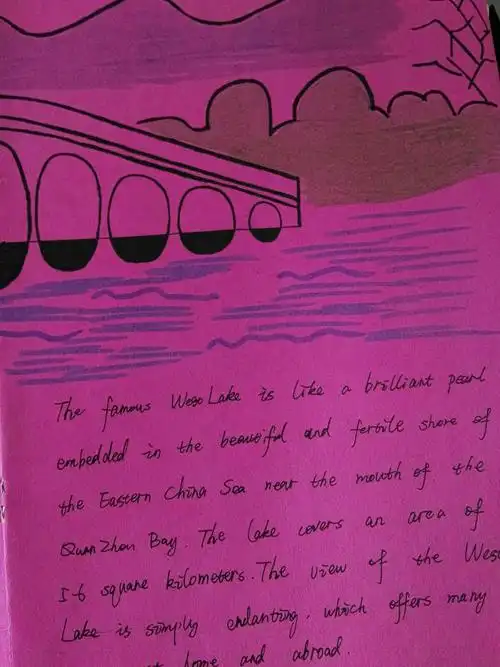 The famous West Lake is like a brilliant pearl
embedded in the beautiful and fertile shore of
the Eastern China Sea near the mouth of the
QuanZhou Bay. The lake covers an area of
5.6 square kilometers. The view of the West
Lake is simply endanting, which offers many
home and abroad.